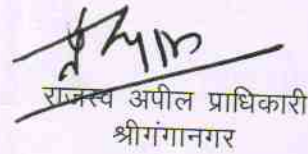 राजस्व अपील प्राधिकारी
श्रीगंगानगर